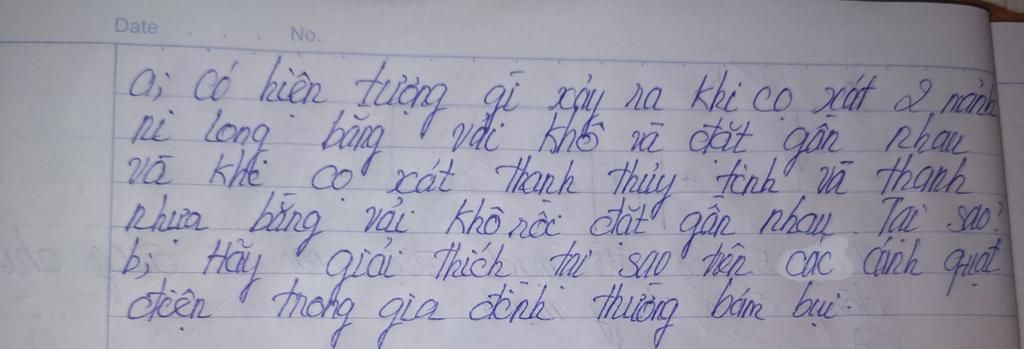 Date No.
a; Có hiện tượng gì xảy ra khi cọ xát 2 mảnh
ni long bằng vải khô và đặt gần nhau
và khi cọ xát thanh thủy tinh và thanh
nhựa bằng vải khô rồi đặt gần nhau. Tại sao?
b; Hãy giải thích tại sao trên các cánh quạt
điện trong gia đình thường bám bụi.